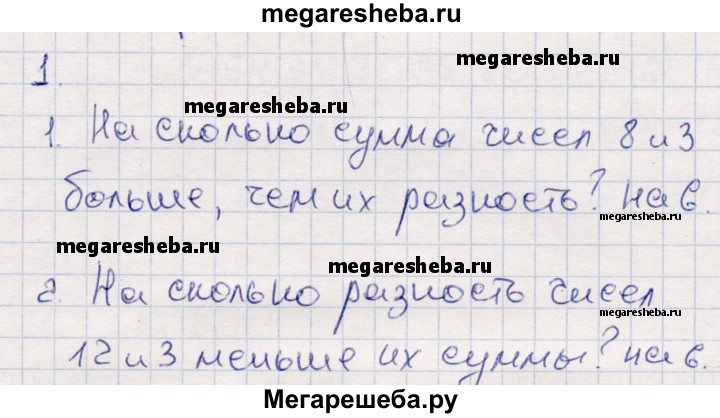 megaresheba.ru
1.
megaresheba.ru
megaresheba.ru
1. На сколько сумма чисел 8 и 3
больше, чем их разность? на 6.
megaresheba.ru
megaresheba.ru
megaresheba.ru
2. На сколько разность чисел
12 и 3 меньше их суммы? на 6.
Мегарешеба.ру